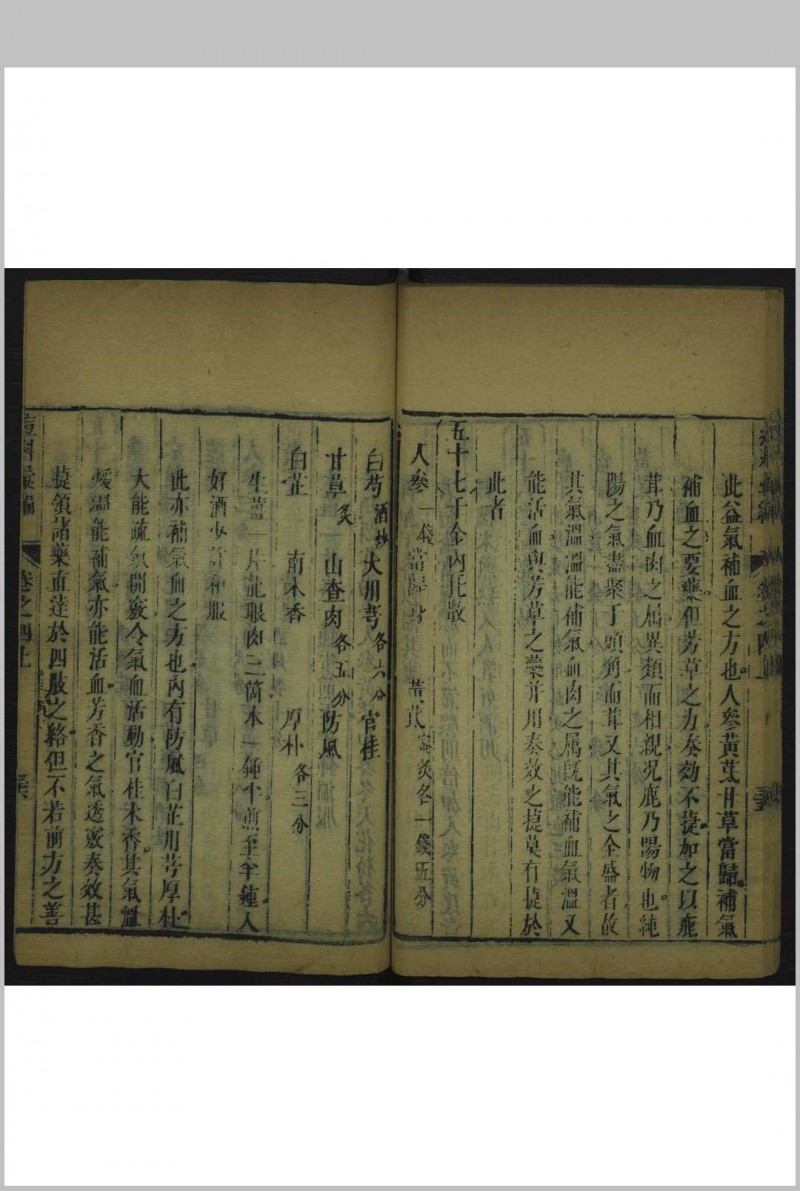 此益氣補血之方也人參黃芪甘草當歸補氣
補血之要藥但芳草之力奏効不捷加之以鹿
茸乃血肉之屬異類而相親况鹿乃陽物也純
陽之氣盡聚于頭角而茸又其氣之全盛者故
其氣溫溫能補氣血肉之屬既能補血氣溫又
能活血與芳草之藥并用奏效之捷莫有捷於
此者
五十七千金內托散
人參一錢當歸身 黃芪蜜炙各一錢五分
白芍酒炒大川芎各六分官桂
甘草炙 山查肉各五分防風
白芷 南木香 厚朴各三分
生薑一片龍眼肉三箇水一鍾半煎至半鍾入
好酒少許和服
此亦補氣血之方也內有防風白芷川芎厚朴
大能疏氣開竅令氣血活動官桂木香其氣溫
煖溫能補氣亦能活血芳香之氣透竅奏效甚
提領諸藥直達於四肢之絡但不若前方之善
痘科彙編 卷之四上